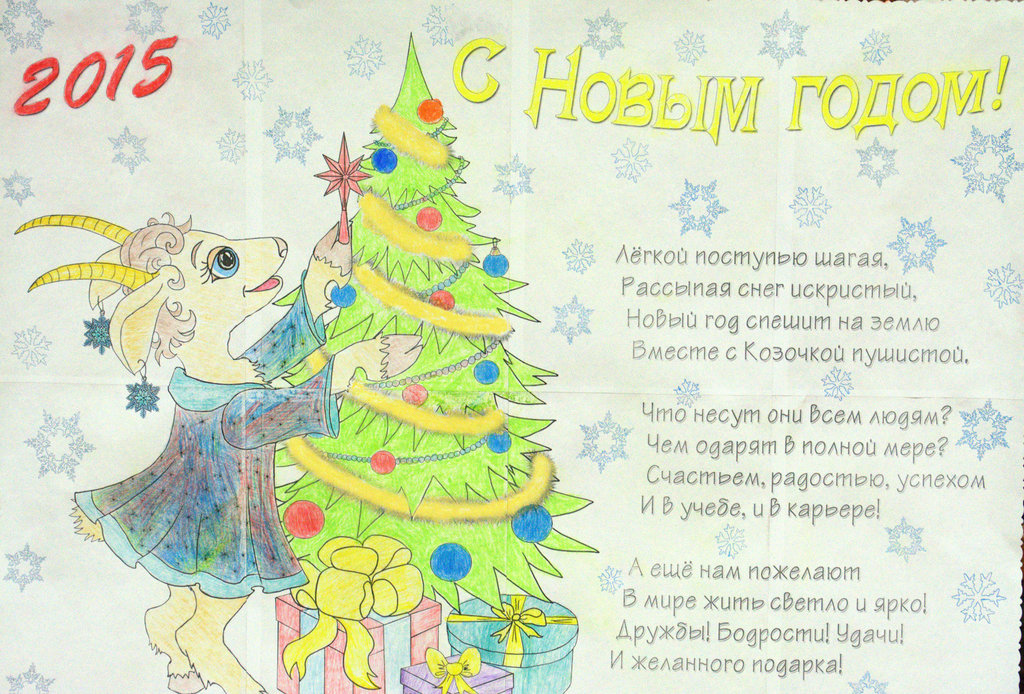 2015
С Новым годом!
Лёгкой поступью шагая,
Рассыпая снег искристый,
Новый год спешит на землю
Вместе с Козочкой пушистой.
Что несут они всем людям?
Чем одарят в полной мере?
Счастьем, радостью, успехом
И в учебе, и в карьере!
А ещё нам пожелают
В мире жить светло и ярко!
Дружбы! Бодрости! Удачи!
И желанного подарка!